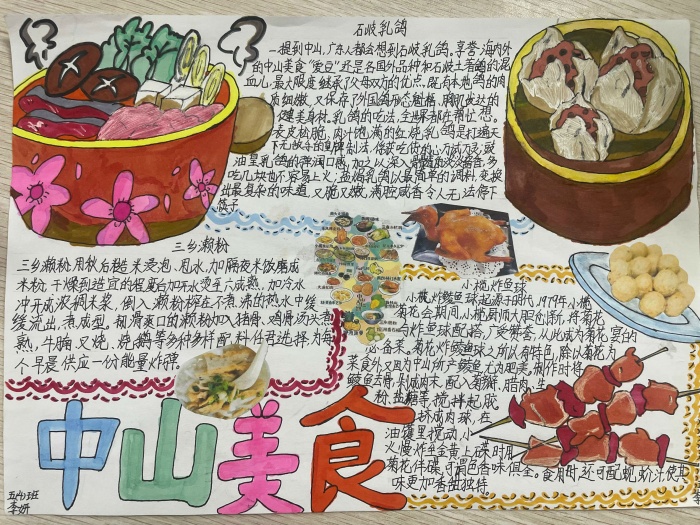 石岐乳鸽
一提到中山,广东人都会想到石岐乳鸽。享誉海内外
的中山美食"爱豆"还是各国外品种和石岐土著鸽的混
血儿,最大限度继承了父母双方的优点,既有本地鸽的肉
质细嫩,又保存了外国鸽形态魁梧,胸肌发达的
健美身材。乳鸽的吃法,全世界都在帮忙想。
表皮松脆,肉汁饱满的红烧乳鸽是打遍天
下无敌手的皇牌
油皇乳鸽的弹润口感,加之以深入
吃几块也不容易上火,盐焗乳鸽以最简单的调料,变换
出最复杂的味道,又脆又嫩,满腔咸香令人无法停下
筷子
三乡濑粉
三乡濑粉,用秋后糙米浸泡、风水,加隔夜米饭磨成
米粉,干燥到适宜的程度台加开水烫至六成熟,加冷水
冲开成浓稠米浆,倒入濑粉榨在不煮沸的热水中缓
缓流出,煮成型。韧滑爽口的濑粉加入猪骨、鸡骨汤头煮
熟,牛腩、叉烧、烧鹅等多种多样配料任君选择,为每
个早晨供应一份能量炸弹。
小榄炸鱼球
小榄炸鲮鱼球起源于明代,1979年小榄
菊花会期间,小榄厨师大胆创新,将菊花
与炸鱼球配搭,广受赞赏,从此成为菊花宴的
必备菜。菊花炸鲮鱼球之所以有特色,除以菊花为
菜食外又因为中山所产鲮鱼尤为肥美,制作时将
鲮鱼去骨,剁成肉末,配入菊瓣、腊肉、生
粉、盐糖等,搅拌起胶
挤成肉球,在
油镬里搅动,小
火慢炸至金黄,上碟时用
菊花伴碟,可谓色香味俱全。食用时,还可配蚬蚧汁使其
味更加香甜独特。
中山美食
五(4)班
李妍